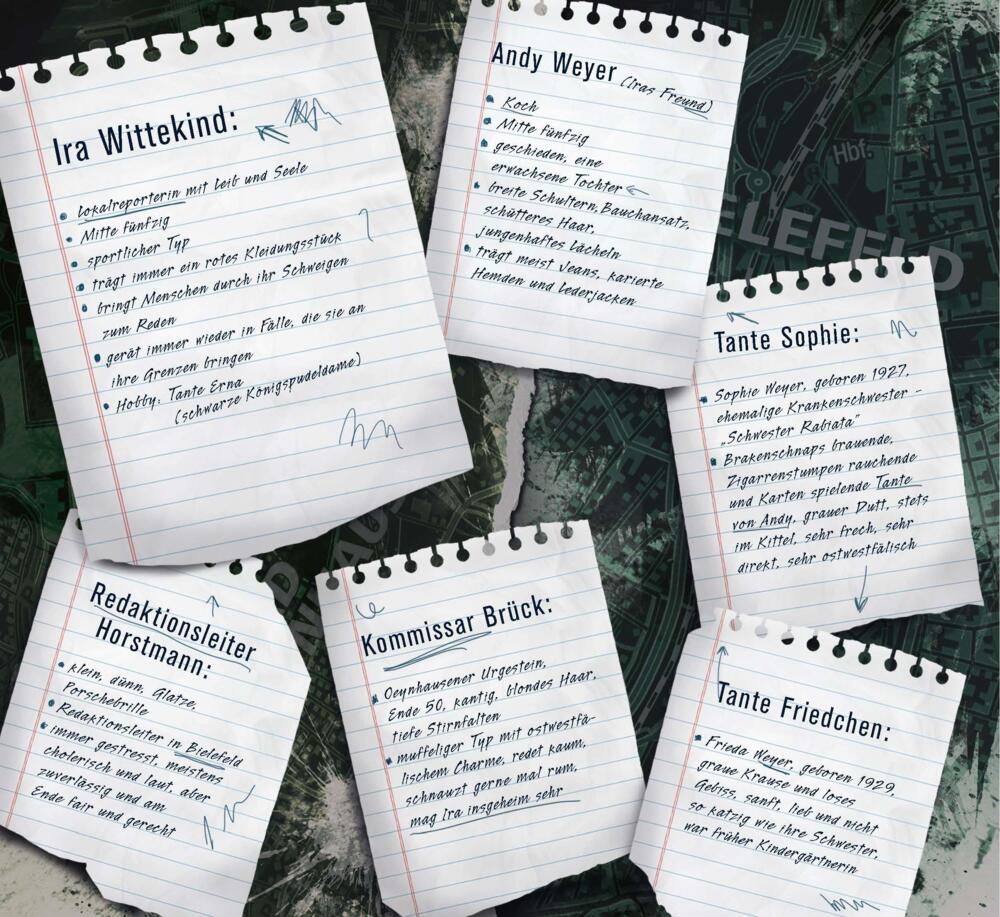 Ira Wittekind:
Lokalreporterin mit Leib und Seele
Mitte fünfzig
sportlicher Typ
trägt immer ein rotes Kleidungsstück
bringt Menschen durch ihr Schweigen
zum Reden
gerät immer wieder in Fälle, die sie an
ihre Grenzen bringen
Hobby: Tante Erna
(schwarze Königspudeldame)
Andy Weyer (Iras Freund)
Koch
Mitte fünfzig
geschieden, eine
erwachsene Tochter
breite Schultern, Bauchansatz,
schütteres Haar,
jungenhaftes Lächeln
trägt meist Jeans, karierte
Hemden und Lederjacken
Hbf.
ELEFELD
Tante Sophie:
Sophie Weyer, geboren 1927,
ehemalige Krankenschwester –
„Schwester Rabiata“
Brakenschnaps brauende,
Zigarrenstumpen rauchende
und Karten spielende Tante
von Andy, grauer Dutt, stets
im Kittel, sehr frech, sehr
direkt, sehr ostwestfälisch
Redaktionsleiter
Horstmann:
klein, dünn, Glatze,
Porschebrille
Redaktionsleiter in Bielefeld
immer gestresst, meistens
cholerisch und laut, aber
zuverlässig und am
Ende fair und gerecht
Kommissar Brück:
Oeynhausener Urgestein,
Ende 50, kantig, blondes Haar,
tiefe Stirnfalten
muffeliger Typ mit ostwestfä-
lischem Charme, redet kaum,
schnauzt gerne mal rum,
mag Ira insgeheim sehr
Tante Friedchen:
Frieda Weyer, geboren 1929,
graue Krause und loses
Gebiss, sanft, lieb und nicht
so katzig wie ihre Schwester,
war früher Kindergärtnerin